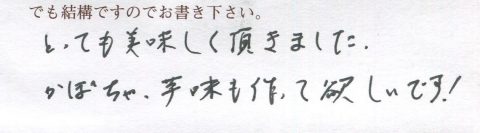 でも結構ですのでお書き下さい。
とっても美味しく頂きました.
かぼちゃ、芋味も作って欲しいです!